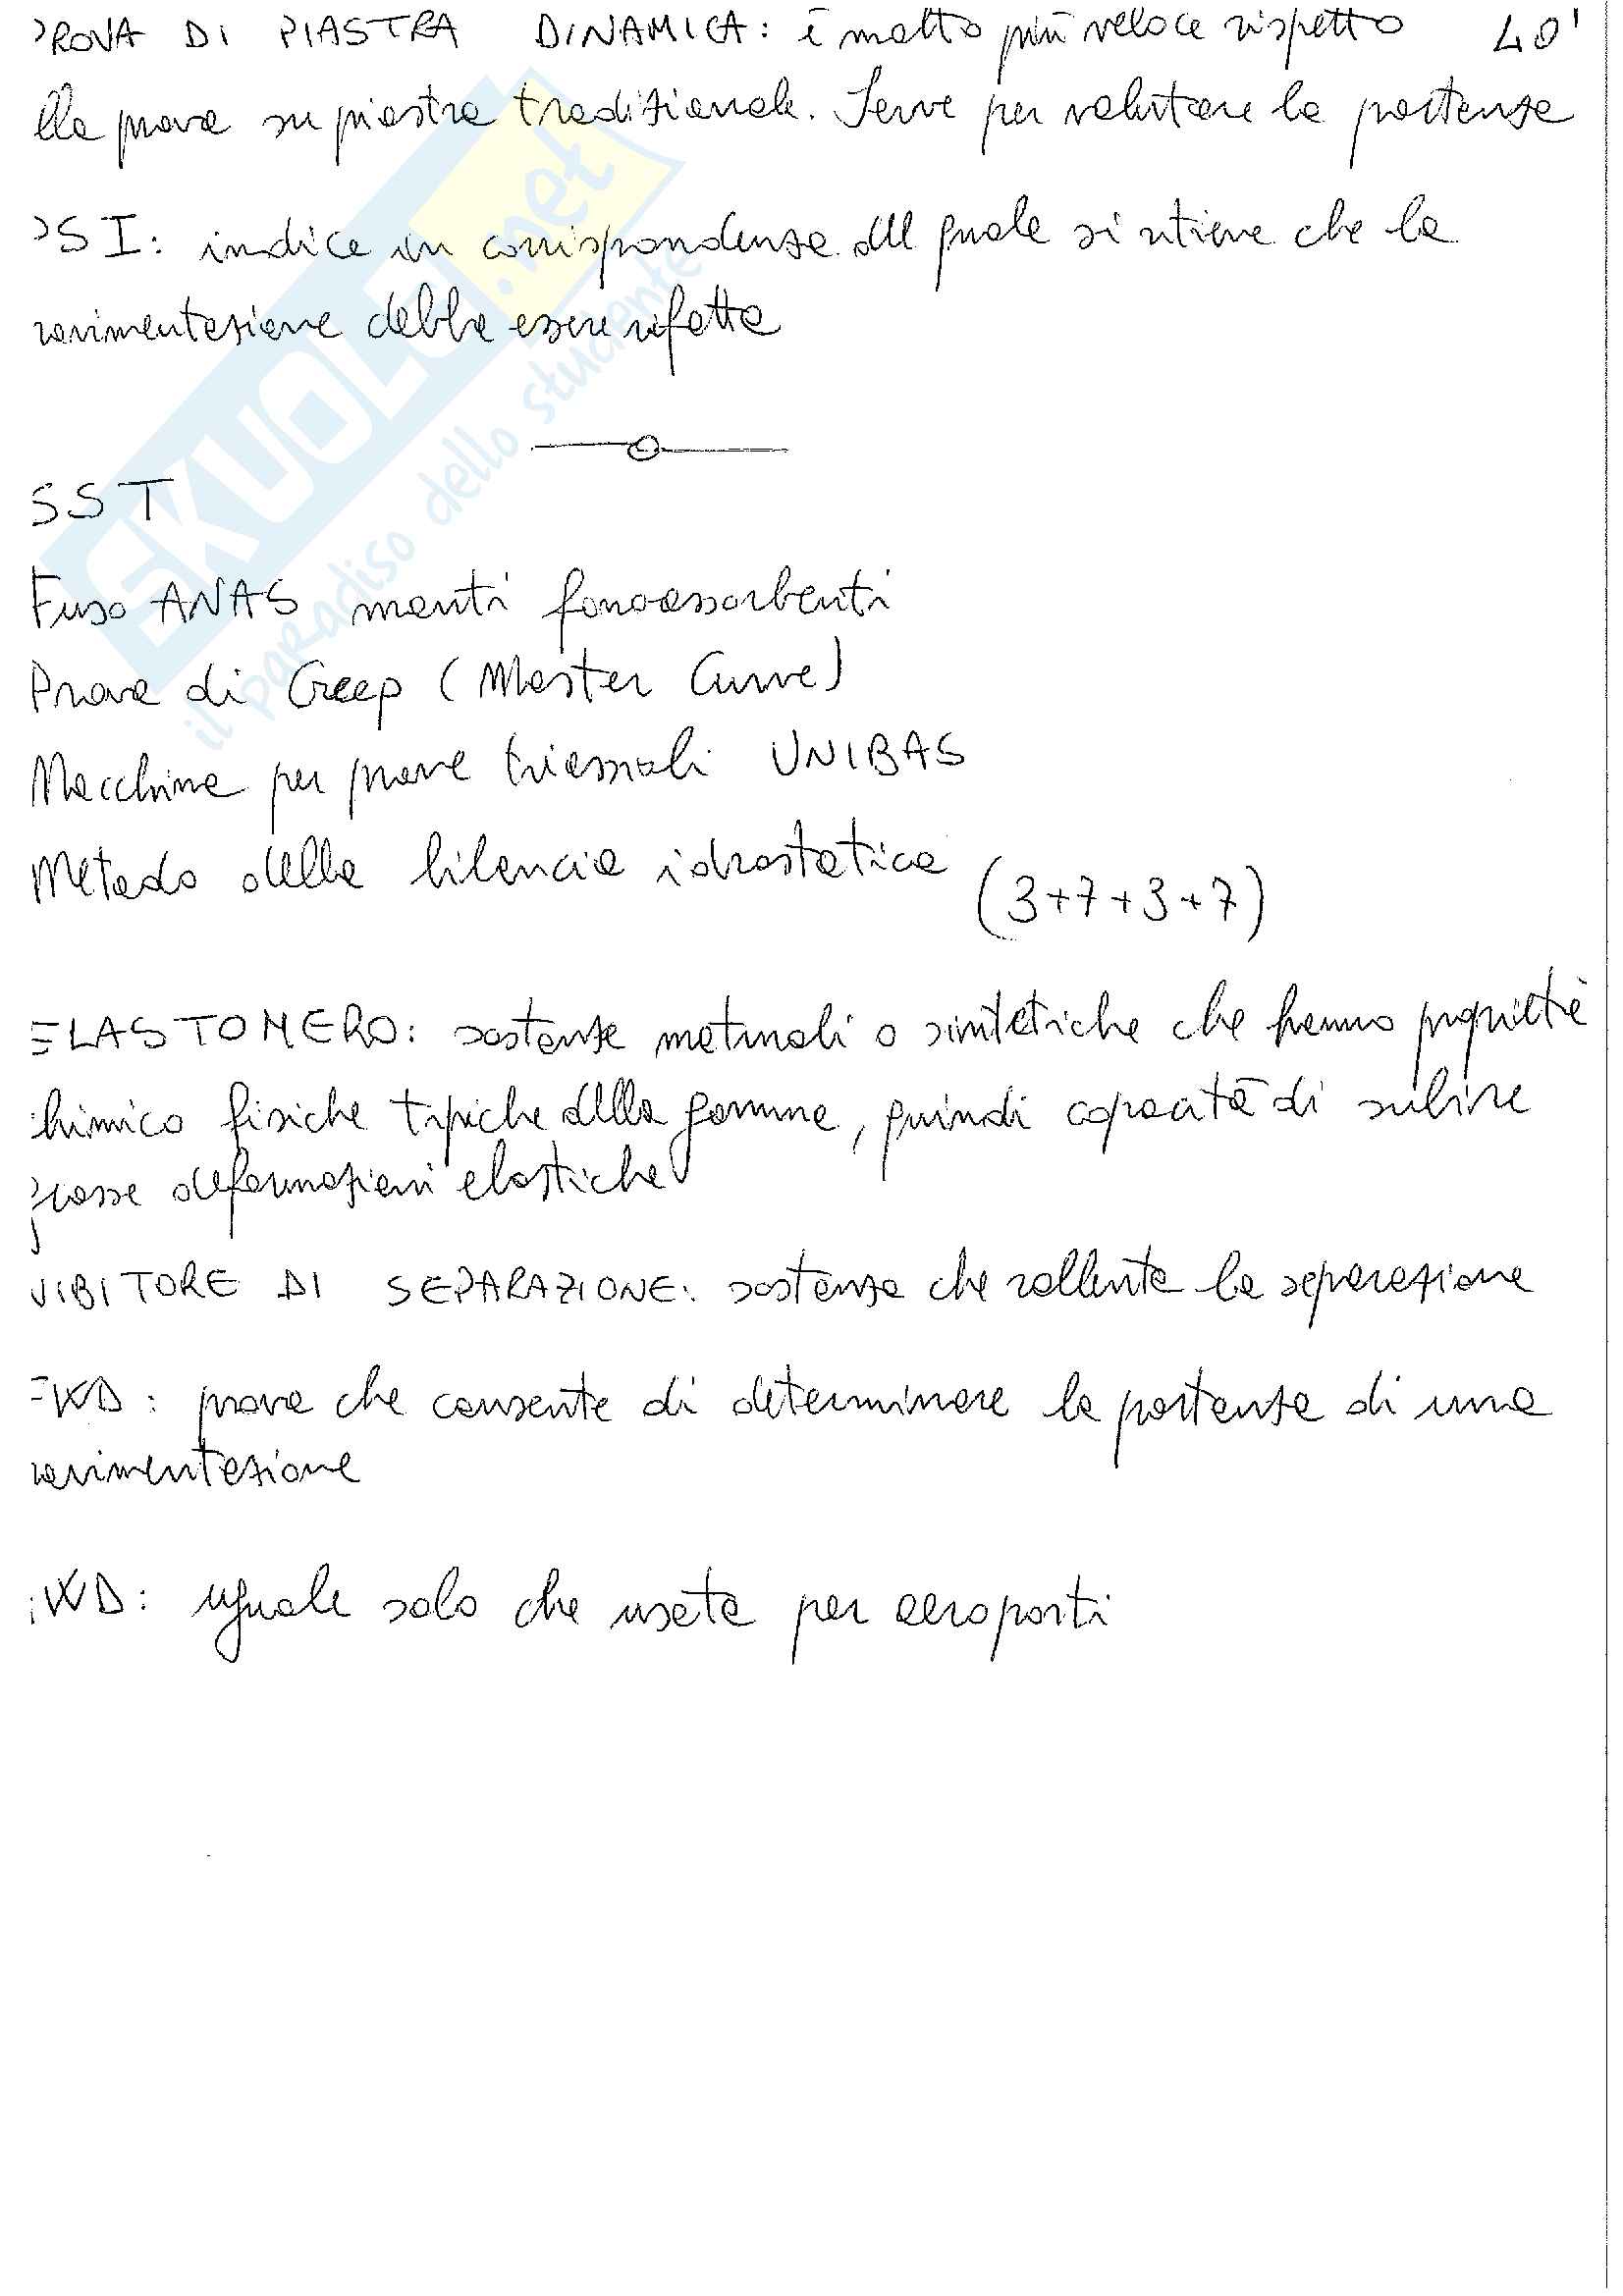 PROVA DI PIASTRA DINAMICA: è molto più veloce rispetto 40'
lla prova su piastra tradizionale. Serve per valutare la portanza
PSI: indice in corrispondenza del quale si ritiene che la
pavimentazione debba essere rifatta
SST
Fuso ANAS manti fonoassorbenti
Prova di Creep (Master Curve)
Macchina per prove triassiali UNIBAS
Metodo della bilancia idrostatica (3+7+3+7)
ELASTOMERO: sostanze naturali o sintetiche che hanno proprietà
chimico fisiche tipiche della gomma, quindi capacità di subire
grosse deformazioni elastiche
NIBITORE DI SEPARAZIONE: sostanza che rallenta la separazione
FWD: prova che consente di determinare la portanza di una
pavimentazione
WD: uguale solo che usata per aeroporti
SKUOLA.net
il paradiso dello studente